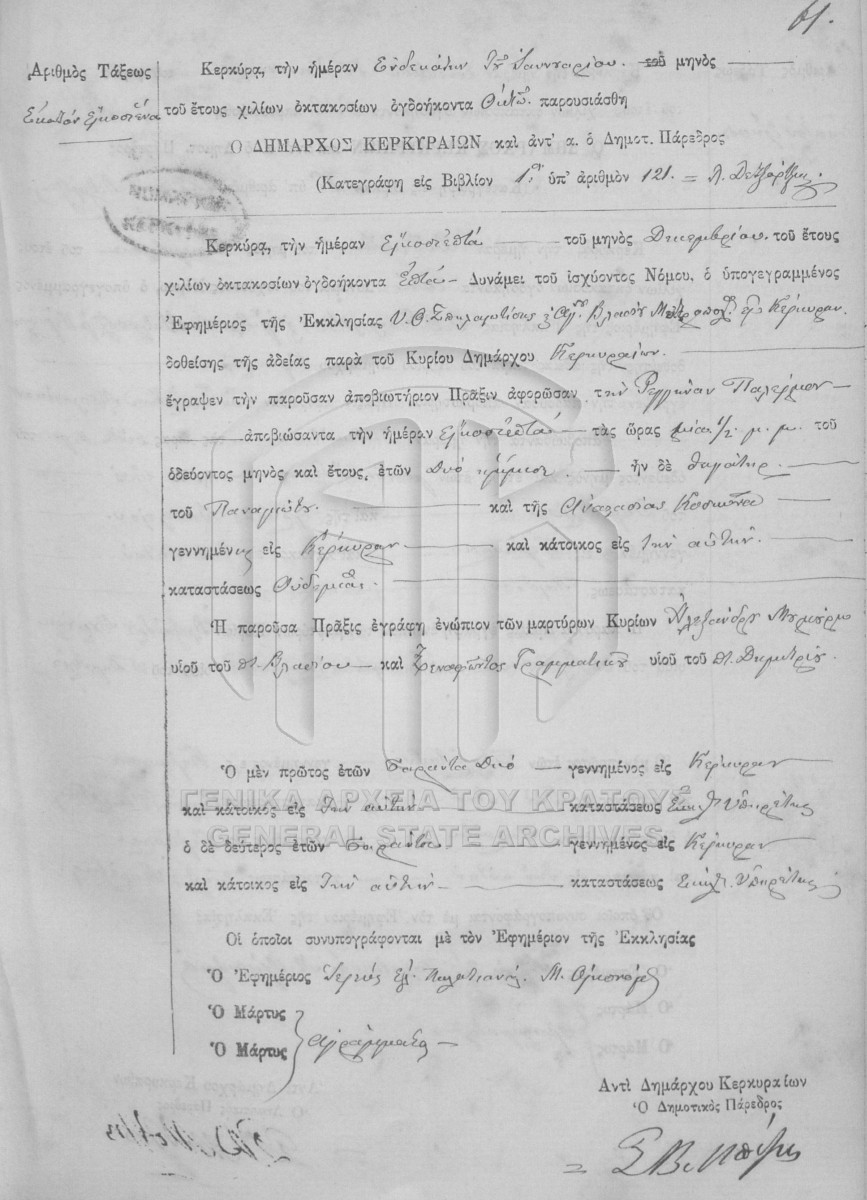 61.
Ἀριθμὸς Τάξεως
Ἑκατὸν Εἰκοσιένα
Κερκύρᾳ, τὴν ἡμέραν Ἑνδεκάτην Ἰαννουαρίου. τοῦ μηνὸς
τοῦ ἔτους χιλίων ὀκτακοσίων ὀγδοήκοντα Ὀκτὼ παρουσιάσθη
Ο ΔΗΜΑΡΧΟΣ ΚΕΡΚΥΡΑΙΩΝ καὶ ἀντ' α. ὁ Δημοτ. Πάρεδρος
(Κατεγράφη εἰς Βιβλίον 1ον ὑπ' ἀριθμὸν 121. =
Κερκύρᾳ, τὴν ἡμέραν Εἰκοσιεπτά τοῦ μηνὸς Δεκεμβρίου. τοῦ ἔτους
χιλίων ὀκτακοσίων ὀγδοήκοντα Ἑπτά Δυνάμει τοῦ ἰσχύοντος Νόμου, ὁ ὑπογεγραμμένος
Ἐφημέριος τῆς Ἐκκλησίας Υ. Θ. Σπηλαιωτίσης Βλασίου Μητροπόλ. Κέρκυραν.
δοθείσης τῆς ἀδείας παρὰ τοῦ Κυρίου Δημάρχου Κερκυραίων.
ἔγραψεν τὴν παροῦσαν ἀποβιωτήριον Πρᾶξιν ἀφορῶσαν τὴν Ρεγγίναν Παλέρμου
ἀποβιώσαντα τὴν ἡμέραν Εἰκοσιεπτά τὰς ὥρας μίαν 1/2 μ. μ. τοῦ
ὁδεύοντος μηνὸς καὶ ἔτους, ἐτῶν Δυό ἥμισυ. ἦν δὲ θυγάτηρ.
τοῦ Παναγιώτου. καὶ τῆς Ἀναστασίας
γεννημένης εἰς Κέρκυραν καὶ κάτοικος εἰς τὴν αὐτήν.
καταστάσεως Οὐδεμίας.
Ἡ παροῦσα Πρᾶξις ἐγράφη ἐνώπιον τῶν μαρτύρων Κυρίων Ἀλεξάνδρου Μουμούρη
υἱοῦ τοῦ π. Βλασίου καὶ Ξενοφῶντος Γραμματικοῦ υἱοῦ τοῦ π. Δημητρίου.
Ὁ μὲν πρῶτος ἐτῶν Σαράντα Δυό γεννημένος εἰς Κέρκυραν
καὶ κάτοικος εἰς τὴν αὐτήν καταστάσεως Ἐκκλ. Ὑπηρέτης
ὁ δὲ δεύτερος ἐτῶν Σαράντα γεννημένος εἰς Κέρκυραν
καὶ κάτοικος εἰς τὴν αὐτήν καταστάσεως Ἐκκλ. Ὑπηρέτης
ΓΕΝΙΚΑ ΑΡΧΕΙΑ ΤΟΥ ΚΡΑΤΟΥΣ
GENERAL STATE ARCHIVES
Οἱ ὁποῖοι συνυπογράφονται μὲ τὸν Ἐφημέριον τῆς Ἐκκλησίας
Ὁ Ἐφημέριος Ἱερεὺς Μ. Οἰκονόμος
Ὁ Μάρτυς
Ὁ Μάρτυς ἀγράμματοι
Ἀντὶ Δημάρχου Κερκυραίων
Ὁ Δημοτικὸς Πάρεδρος